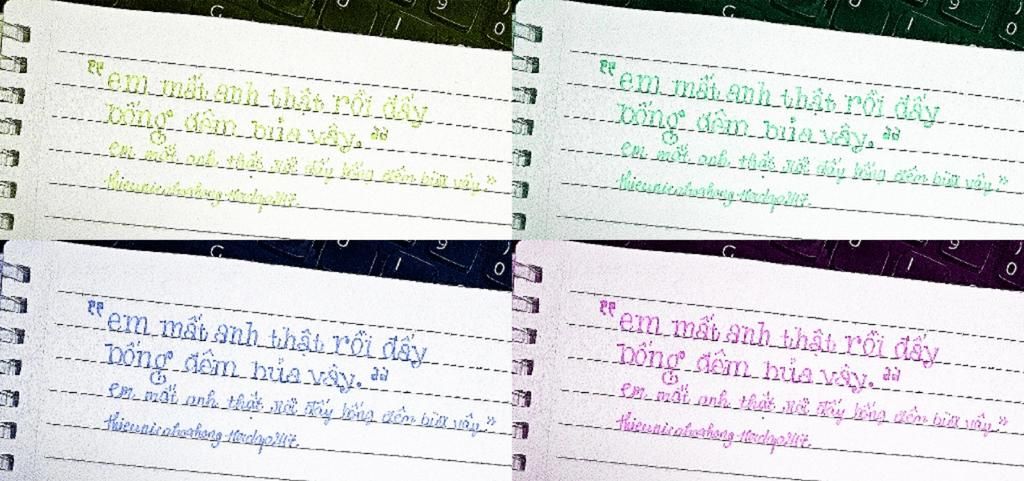 “em mất anh thật rồi đấy
bống đêm bủa vây.”
em mất anh thật rồi đấy bống đêm bủa vây.”
“em mất anh thật rồi đấy
bống đêm bủa vây.”
em mất anh thật rồi đấy bống đêm bủa vây.”
“em mất anh thật rồi đấy
bống đêm bủa vây.”
em mất anh thật rồi đấy bống đêm bủa vây.”
“em mất anh thật rồi đấy
bống đêm bủa vây.”
em mất anh thật rồi đấy bống đêm bủa vây.”